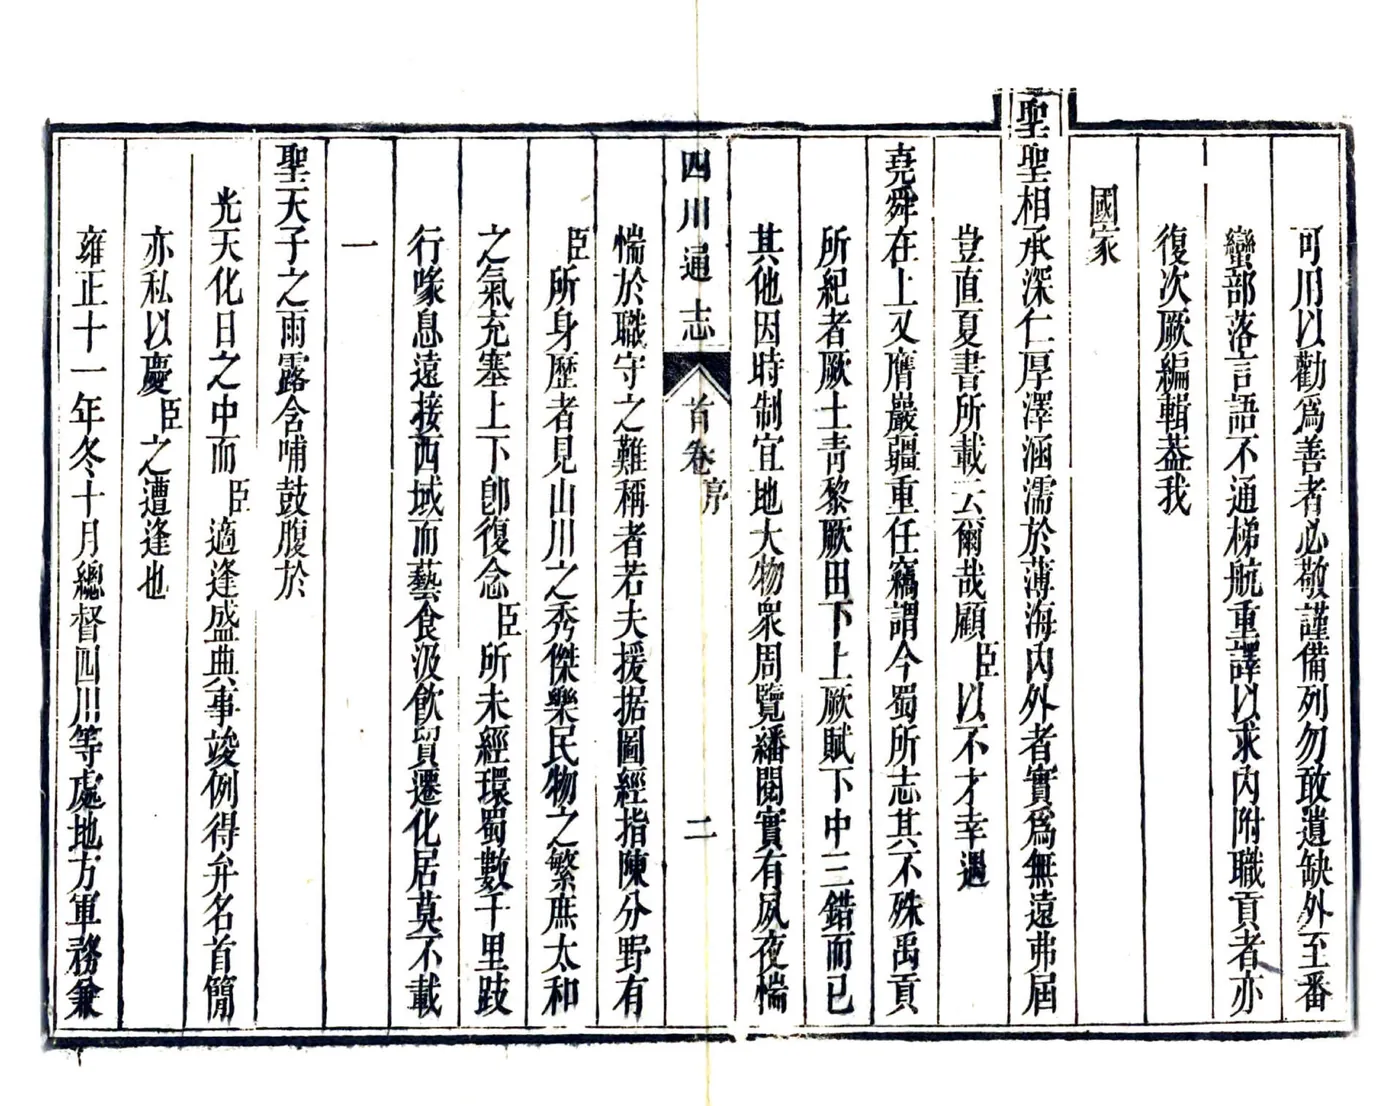 可用以勸爲善者必敬謹備列勿敢遺缺外至番
蠻部落言語不通梯航重譯以求內附職貢者亦
復次厥編輯葢我
國家
聖聖相承深仁厚澤涵濡於薄海內外者實爲無遠弗屆
豈直夏書所載云爾哉顧臣以不才幸遇
堯舜在上又膺嚴疆重任竊謂今蜀所志其不殊禹貢
所紀者厥土靑黎厥田下上厥賦下中三錯而已
其他因時制宜地大物衆周覽繙閱實有夙夜惴
四川通志
首卷
序
二
惴於職守之難稱者若夫援据圖經指陳分野有
臣所身歷者見山川之秀傑樂民物之繁庶太和
之氣充塞上下卽復念臣所未經環蜀數千里跂
行喙息遠接西域而藝食汲飮貿遷化居莫不載
一
聖天子之雨露含哺鼓腹於
光天化日之中而臣適逢盛典事竣例得弁名首簡
亦私以慶臣之遭逢也
雍正十一年冬十月總督四川等處地方軍務兼